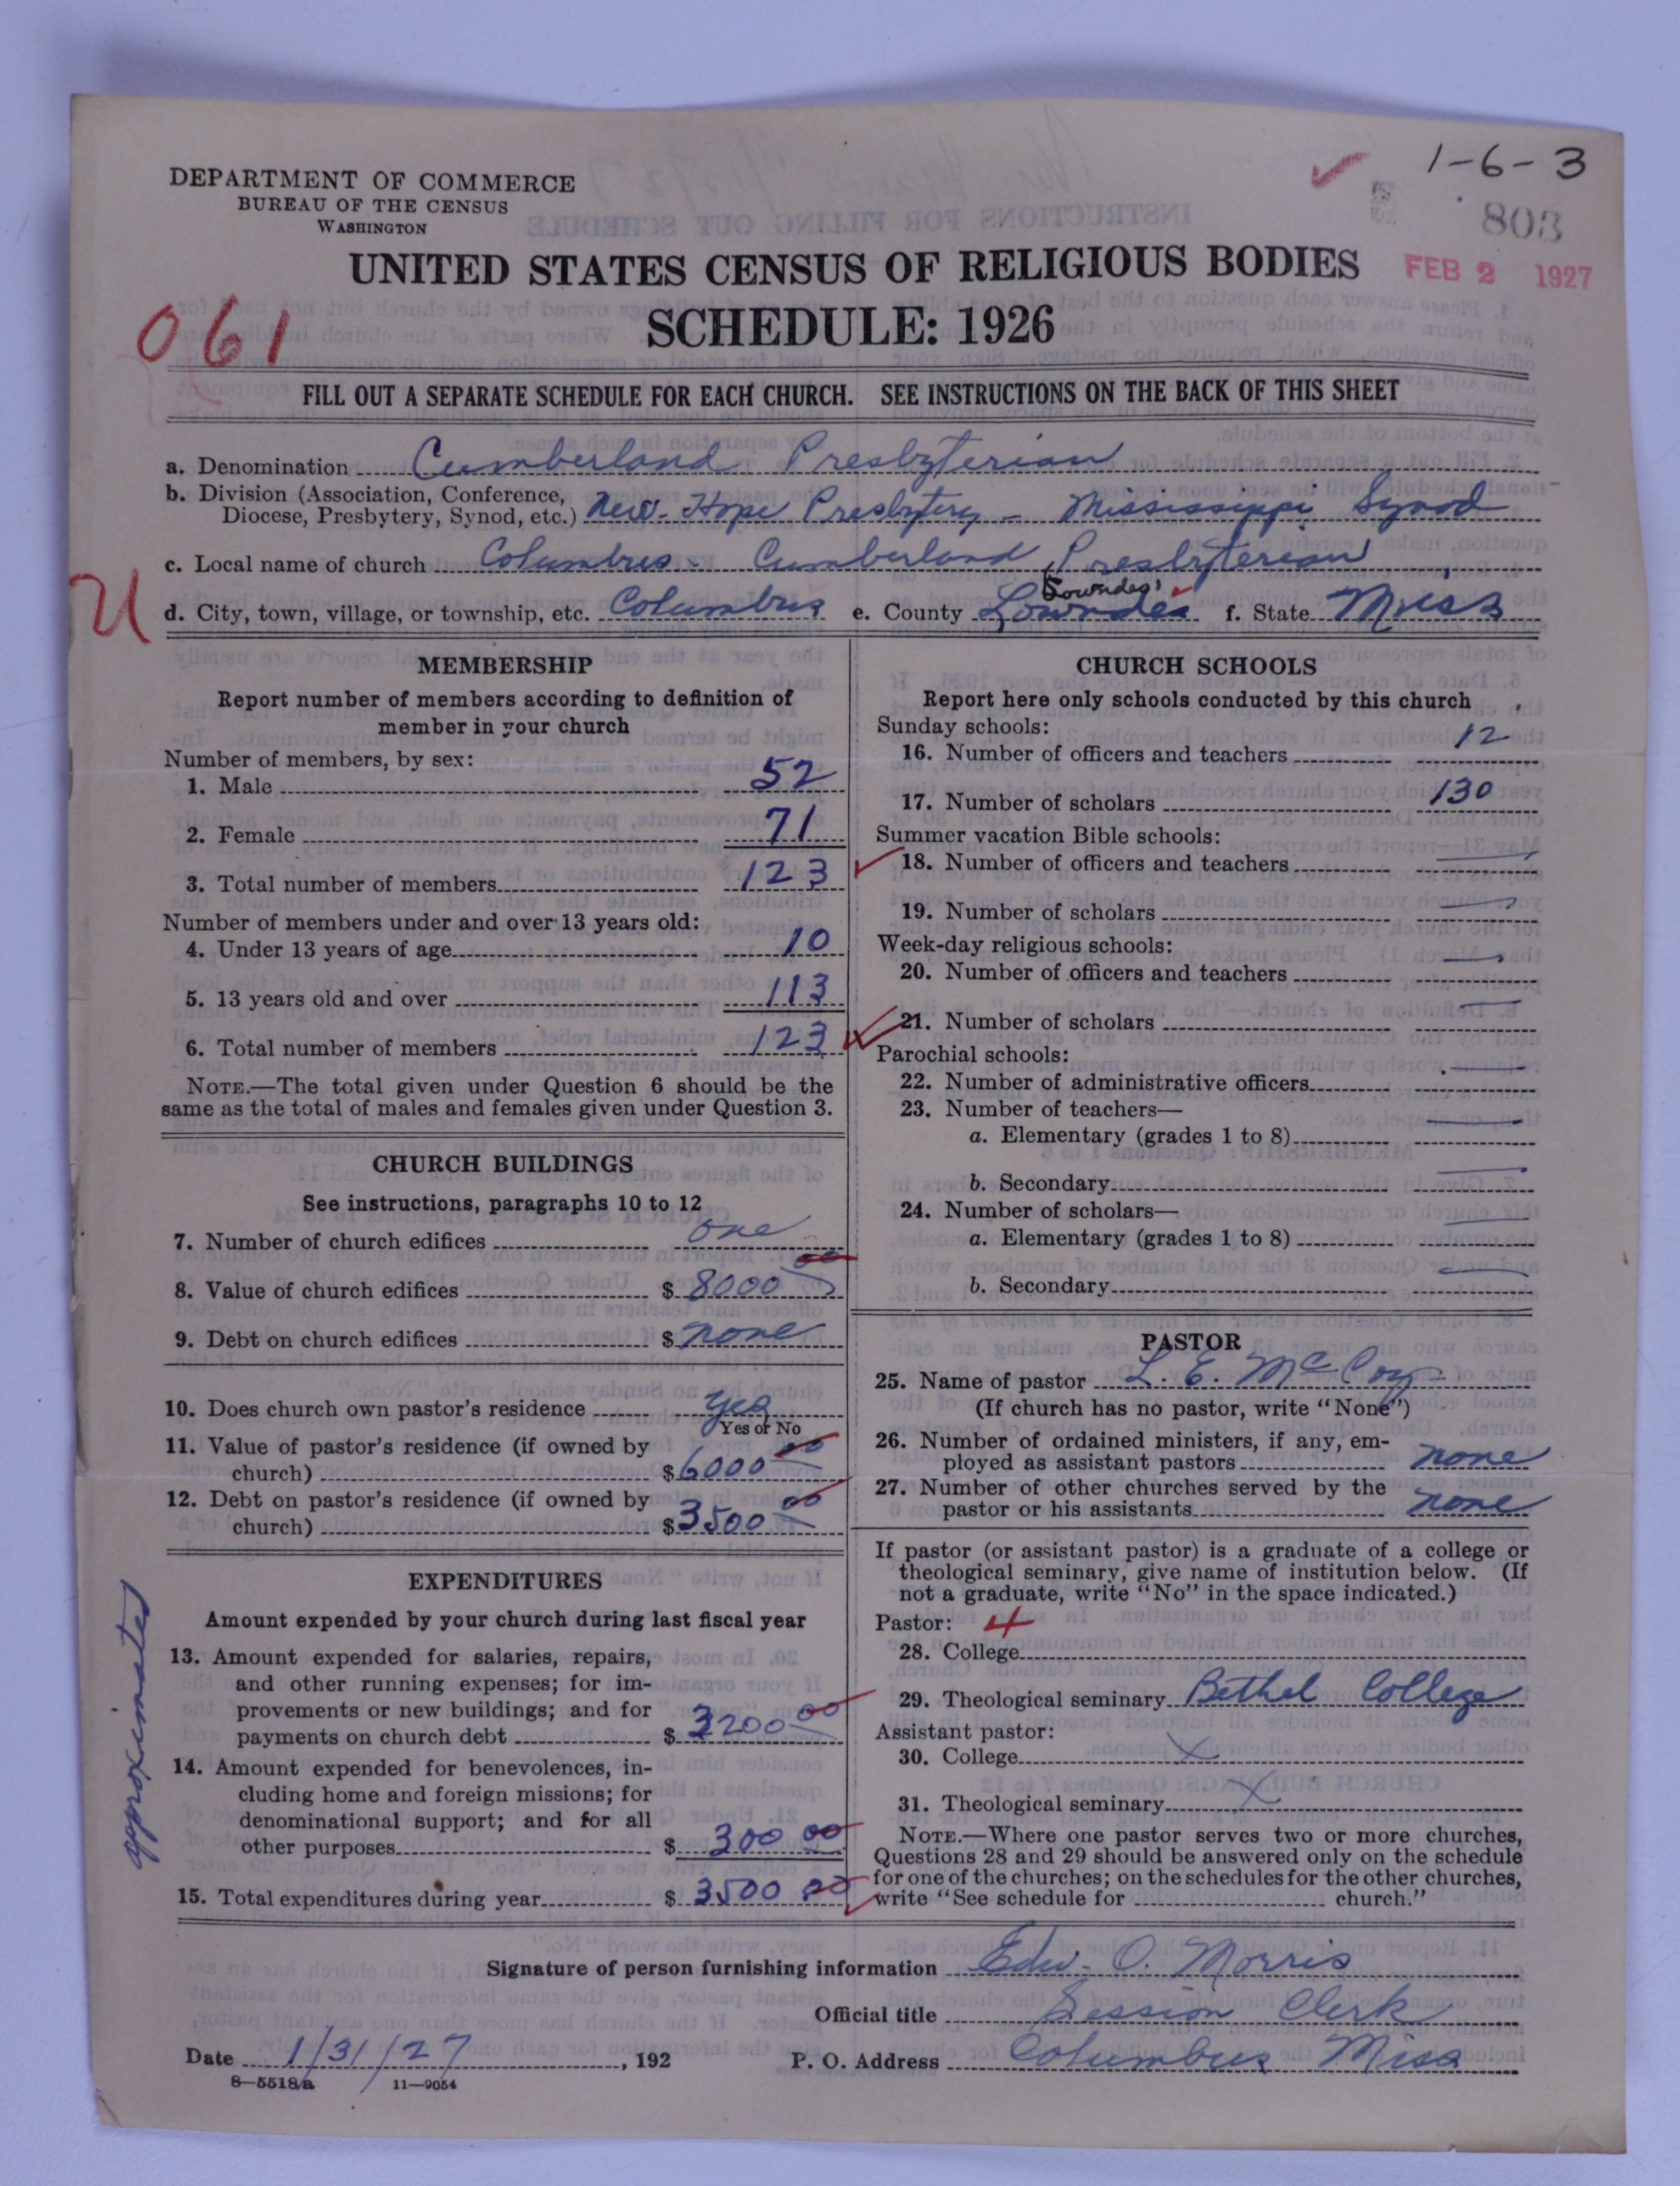 1-6-3
DEPARTMENT OF COMMERCE
BUREAU OF THE CENSUS
WASHINGTON
803
UNITED STATES CENSUS OF RELIGIOUS BODIES
FEB 2 1927
061
SCHEDULE: 1926
FILL OUT A SEPARATE SCHEDULE FOR EACH CHURCH. SEE INSTRUCTIONS ON THE BACK OF THIS SHEET
a. Denomination Cumberland Presbyterian
b. Division (Association, Conference,
Diocese, Presbytery, Synod, etc.) New-Hope Presbytery - Mississippi Synod
c. Local name of church Columbus - Cumberland Presbyterian
Lowndes
U
d. City, town, village, or township, etc. Columbus e. County Lowndes f. State Miss
MEMBERSHIP
Report number of members according to definition of
member in your church
Number of members, by sex:
1. Male 52
2. Female 71
3. Total number of members 123
Number of members under and over 13 years old:
4. Under 13 years of age 10
5. 13 years old and over 113
6. Total number of members 123
NOTE.—The total given under Question 6 should be the
same as the total of males and females given under Question 3.
CHURCH BUILDINGS
See instructions, paragraphs 10 to 12
7. Number of church edifices one
8. Value of church edifices $ 8000 00
9. Debt on church edifices $ none
10. Does church own pastor's residence yes
Yes or No
11. Value of pastor's residence (if owned by
church) $ 6000 00
12. Debt on pastor's residence (if owned by
church) $ 3500 00
EXPENDITURES
Amount expended by your church during last fiscal year
approximated
13. Amount expended for salaries, repairs,
and other running expenses; for im-
provements or new buildings; and for
payments on church debt $ 3200 00
14. Amount expended for benevolences, in-
cluding home and foreign missions; for
denominational support; and for all
other purposes $ 300 00
15. Total expenditures during year $ 3500 00
CHURCH SCHOOLS
Report here only schools conducted by this church
Sunday schools:
16. Number of officers and teachers 12
17. Number of scholars 130
Summer vacation Bible schools:
18. Number of officers and teachers —
19. Number of scholars —
Week-day religious schools:
20. Number of officers and teachers —
21. Number of scholars —
Parochial schools:
22. Number of administrative officers —
23. Number of teachers—
a. Elementary (grades 1 to 8) —
b. Secondary —
24. Number of scholars—
a. Elementary (grades 1 to 8) —
b. Secondary —
PASTOR
25. Name of pastor L. E. McCoy
(If church has no pastor, write "None")
26. Number of ordained ministers, if any, em-
ployed as assistant pastors none
27. Number of other churches served by the
pastor or his assistants none
If pastor (or assistant pastor) is a graduate of a college or
theological seminary, give name of institution below. (If
not a graduate, write "No" in the space indicated.)
Pastor: 4
28. College
29. Theological seminary Bethel College
Assistant pastor:
30. College X
31. Theological seminary X
NOTE.—Where one pastor serves two or more churches,
Questions 28 and 29 should be answered only on the schedule
for one of the churches; on the schedules for the other churches,
write "See schedule for church."
Signature of person furnishing information Edw. O. Morris
Official title Session Clerk
Date 1/31/27, 192 P. O. Address Columbus Miss
8—5518a 11—9054